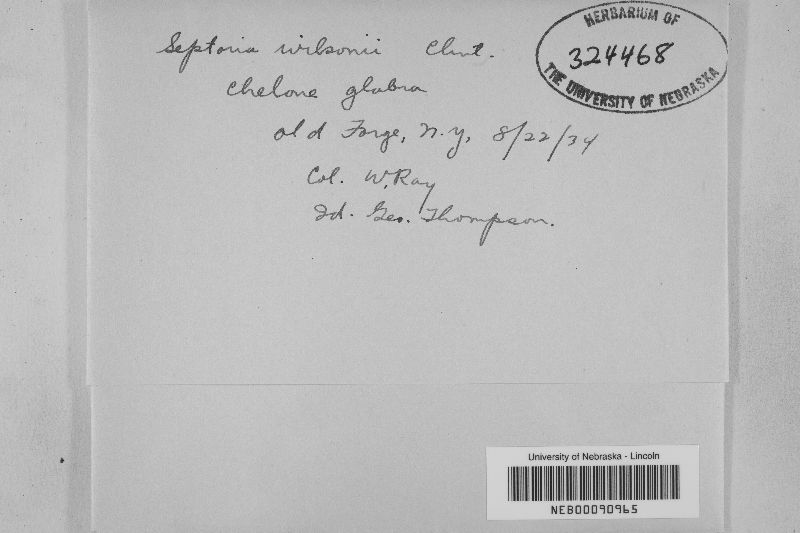 HERBARIUM OF
324468
THE UNIVERSITY OF NEBRASKA
Septoria wilsonii Clint.
Chelone glabra
Old Forge, N.Y, 8/22/34
Col. W. Ray
Id. Geo. Thompson.
University of Nebraska - Lincoln
NEB00090965